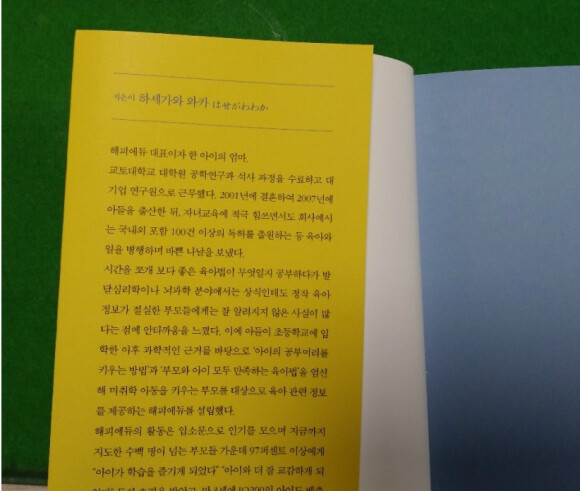 지은이 하세가와 와카 はせがわわか
해피에듀 대표이자 한 아이의 엄마.
교토대학교 대학원 공학연구과 석사 과정을 수료하고 대
기업 연구원으로 근무했다. 2001년에 결혼하여 2007년에
아들을 출산한 뒤, 자녀교육에 적극 힘쓰면서도 회사에서
는 국내외 포함 100건 이상의 특허를 출원하는 등 육아와
일을 병행하며 바쁜 나날을 보냈다.
시간을 쪼개 보다 좋은 육아법이 무엇일지 공부하다가 발
달심리학이나 뇌과학 분야에서는 상식인데도 정작 육아
정보가 절실한 부모들에게는 잘 알려지지 않은 사실이 많
다는 점에 안타까움을 느꼈다. 이에 아들이 초등학교에 입
학한 이후 과학적인 근거를 바탕으로 ‘아이의 공부머리를
키우는 방법’과 ‘부모와 아이 모두 만족하는 육아법’을 엄선
해 미취학 아동을 키우는 부모를 대상으로 육아 관련 정보
를 제공하는 해피에듀를 설립했다.
해피에듀의 활동은 입소문으로 인기를 모으며 지금까지
지도한 수백 명이 넘는 부모들 가운데 97퍼센트 이상에게
“아이가 학습을 즐기게 되었다” “아이와 더 잘 교감하게 되